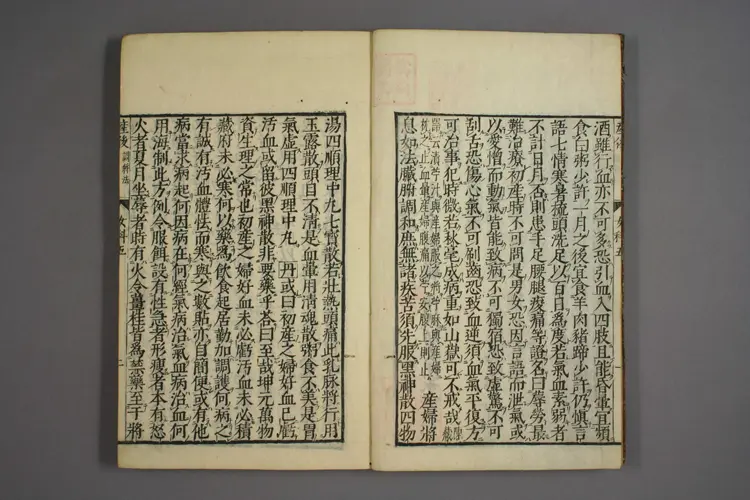 酒雖行血亦不可多恐引血入四肢且能昏聵官頻
食白粥少許一月之後宜食羊肉猪蹄少許仍愼言
語七情寒暑梳頭洗足以百日爲度若氣血素弱者
不計日月否則患手足腰腿痠痛等證名曰蓐勞最
難治療初產時不可問是男女恐因言語而泄氣或
以愛憎而動氣皆能致病不可獨宿恐致虛驚不可
刮舌恐傷心氣不可刷齒恐致血逆須血氣平復方
可治事犯時微若秋毫成病重如山嶽可不戒哉
產婦將
息如法臟腑調和庶無諸疾苦須先服黑神散四物
產後
女科五
湯四順理中丸七寶散若壯熱頭痛此乳脉將行用
玉露散頭目不淸是血暈用淸魂散粥食不美是胃
氣虛用四順理中丸 丹或曰初產之婦好血已虧
汚血或留彼黑神散非要藥乎答曰至哉坤元萬物
資生理之常也初產之婦好血未必虧汚血未必積
藏府未必寒何以藥爲飲食起居勤加調護何病之
有誠有汚血體怯而寒與之數貼亦自簡便或有他
病當求病起何因病在何經氣病治氣血病治血何
用海制此方例令服餌設有性急者形瘦者本有怒
火者夏月坐蓐者時有火令薑桂皆爲禁藥至于將
產後 調理法
女科五
二